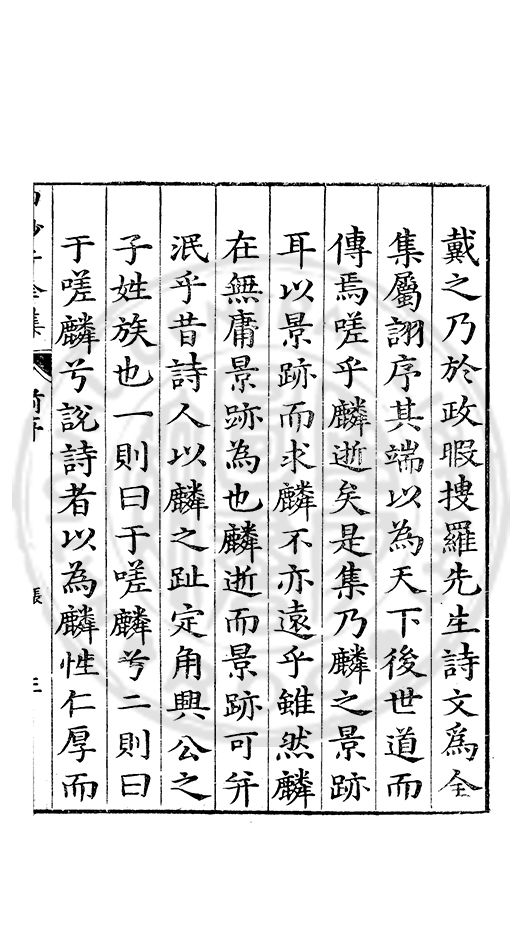 戴之乃於政暇搜羅先生詩文爲全
集屬詡序其端以為天下後世道而
傳焉嗟乎麟逝矣是集乃麟之景跡
耳以景跡而求麟不亦遠乎雖然麟
在無庸景跡為也麟逝而景跡可并
泯乎昔詩人以麟之趾定角興公之
子姓族也一則曰于嗟麟兮二則曰
于嗟麟兮說詩者以為麟性仁厚而
全集 前序 三